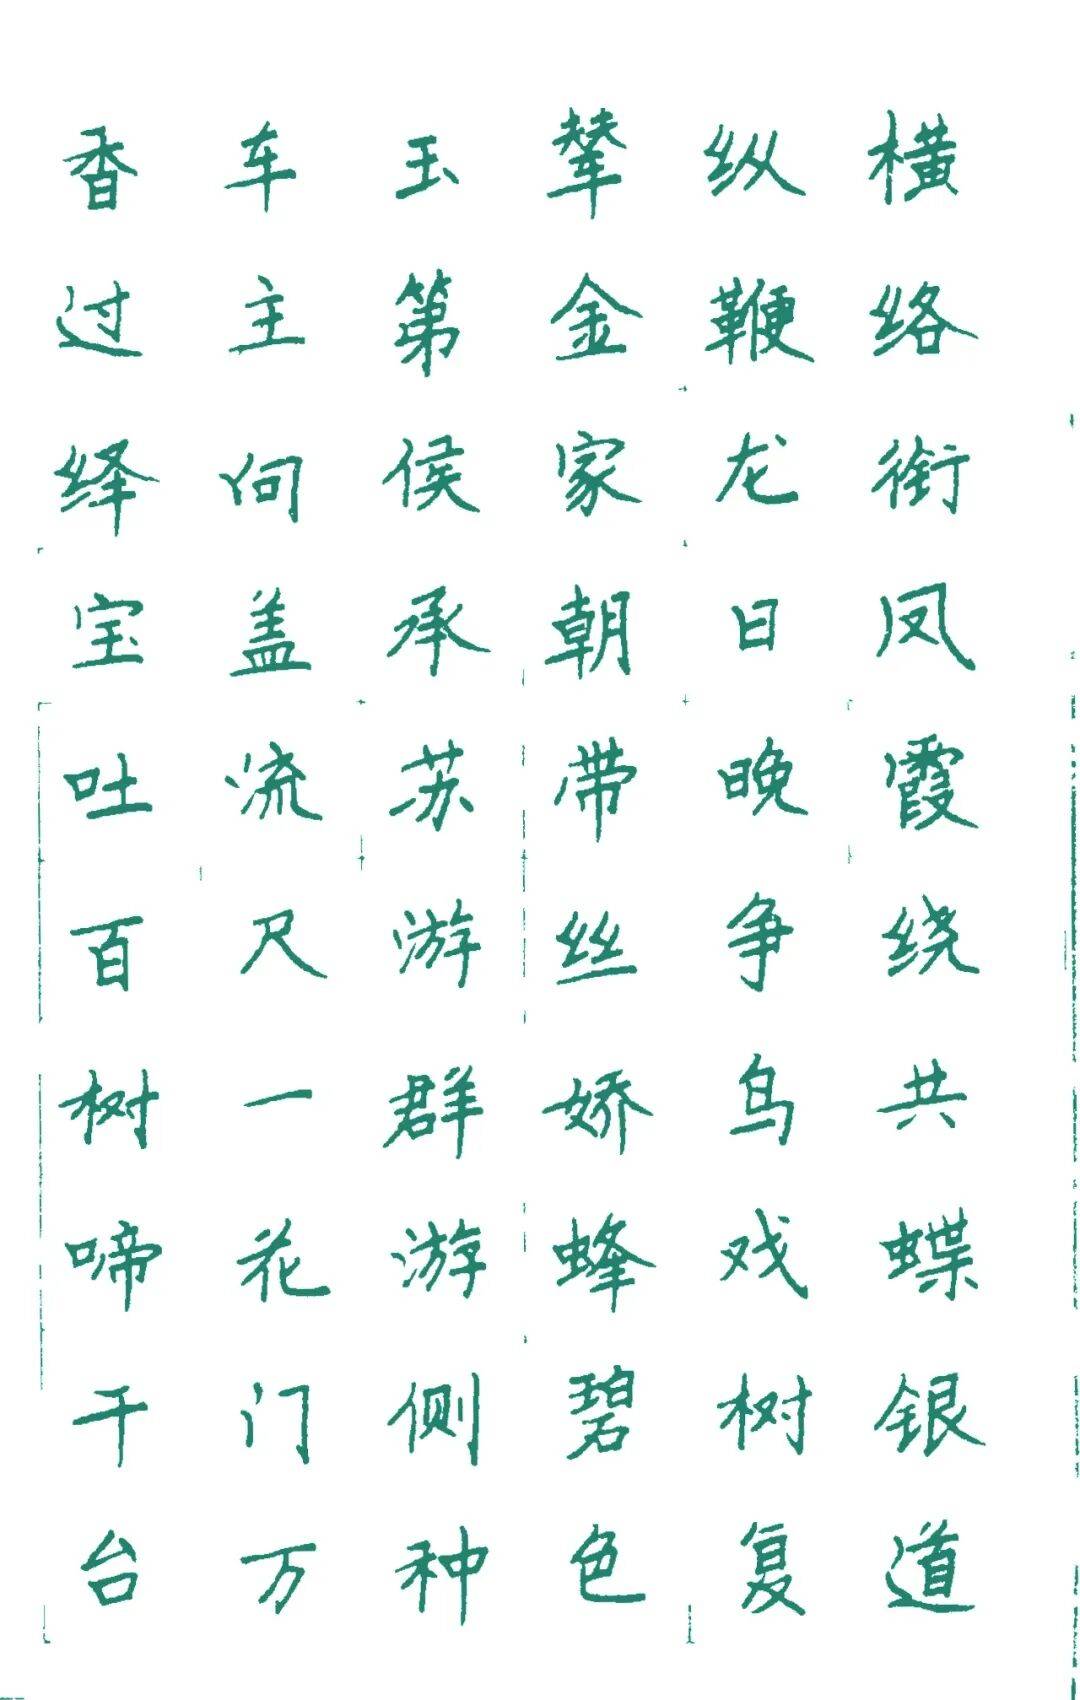 香车玉辇纵横
过主第金鞭络
绎向侯家龙衔
宝盖承朝日凤
吐流苏带晚霞
百尺游丝争绕
树一群娇鸟共
啼花游蜂戏蝶
千门侧碧树银
台万种色复道